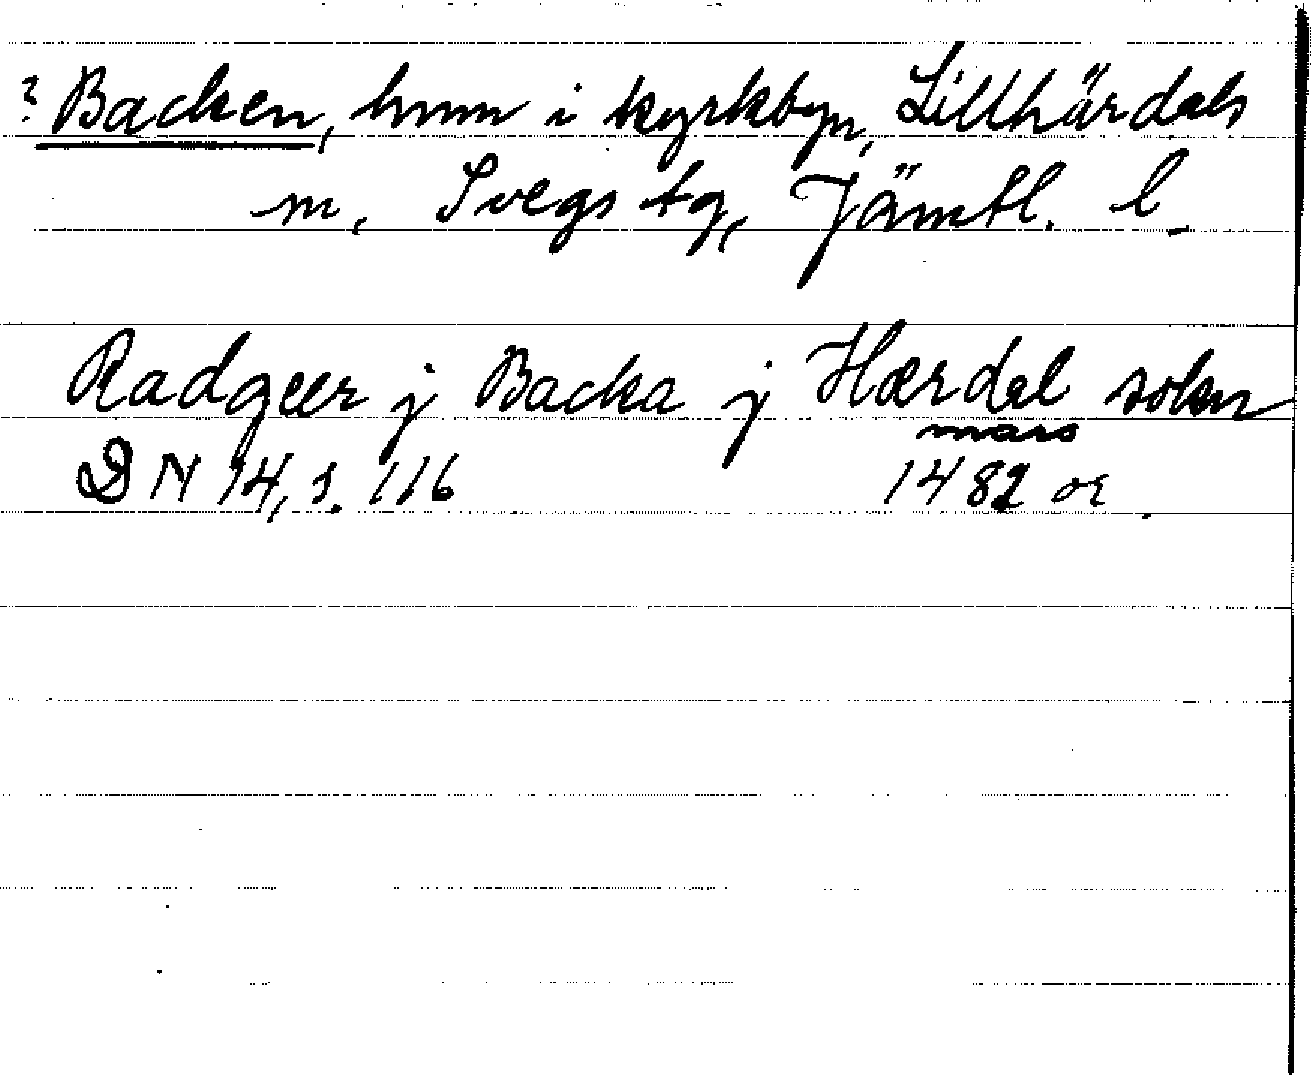 ? Backen, hmn i kyrkbyn, Lillhärdals
sn, Svegs tg, Jämtl. l.
Radgeer j Backa j Hærdal sokn
mars
DN 14, s. 116 1482 or